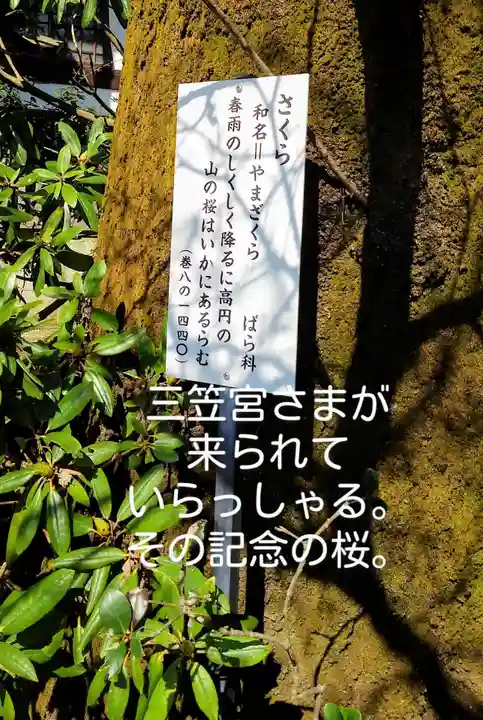 さくら
和名＝やまざくら　ばら科
春雨のしくしく降るに高円の
山の桜はいかにあるらむ
（巻八の一四四〇）
三笠宮さまが
来られて
いらっしゃる。
その記念の桜。